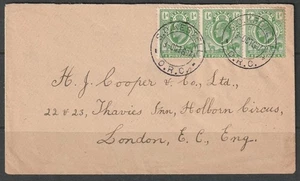 O.R.C.
H. J. Cooper & Co., Ltd.,
22 & 23, Thavies Inn, Holborn Circus,
London, E. C., Eng.